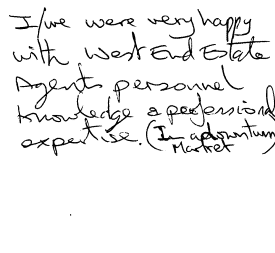 I/we were very happy
with West End Estate
Agents personnel
knowledge & professional
expertise. (In a downturn
Market